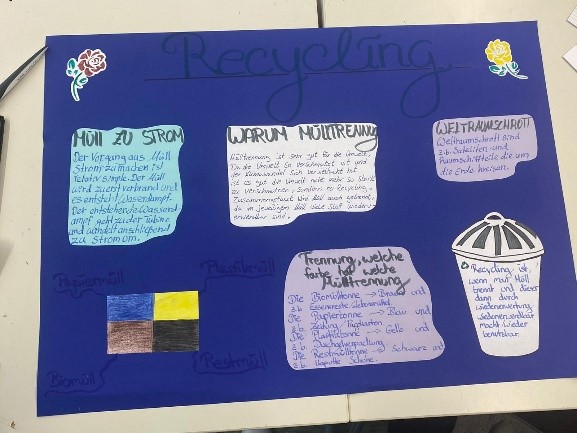 Recycling
MÜLL ZU STROM
Der Vorgang aus Müll
Strom zu machen ist
relativ simple. Der Müll
wird zuerst verbrand und
es entsteht Wasserdampf.
Der entstehende Wasserd
ampf geht zu der Tubine
und wandelt anschließend
zu Strom um.
WARUM MÜLLTRENNUNG
Mülltrennung ist sehr gut für die Umwelt,
Da die Umwelt so verschmutzt ist und
der Klimawandel sich verstärcht hat
ist es gut die Umwelt nicht mehr so stark
zu verschmutzen, sondern zu Recycling.
Zusammengefasst wird Müll auch getrennt,
da im jeweiligen Müll viele Stoffe wieder-
verwertbar sind.
WELTRAUMSCHROTT
Weltraumschrott sind
z.b. Sateliten und
Raumschiffteile die um
die Erde kreisen.
Trennung, welche
farbe hat welche
Mülltrennung
Die Biomülltonne → Braun und
z.b. Essensreste Lebensmittel.
Die Papiertonne → Blau und
z.b. Zeitung, Pappkarton.
Die Plastiktonne → Gelb und
z.b.
Die Restmülltonne → Schwarz und
z.b. kaputte Schuhe.
Recycling ist,
wenn man Müll
trennt und dieser
dann durch
wiederverwertung
wiederverwendbar
macht. Wieder
benutzbar.
Papiermüll
Plastikmüll
Biomüll
Restmüll